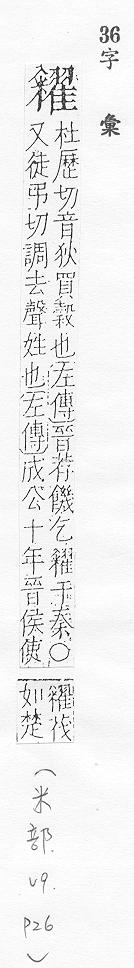 36
字 彙
糴
杜歷切音狄買穀也左傳晉荐饑乞糴于秦○
又徒弔切調去聲姓也左傳成公十年晉侯使
糴茷
如楚
(米部 v9. p26)